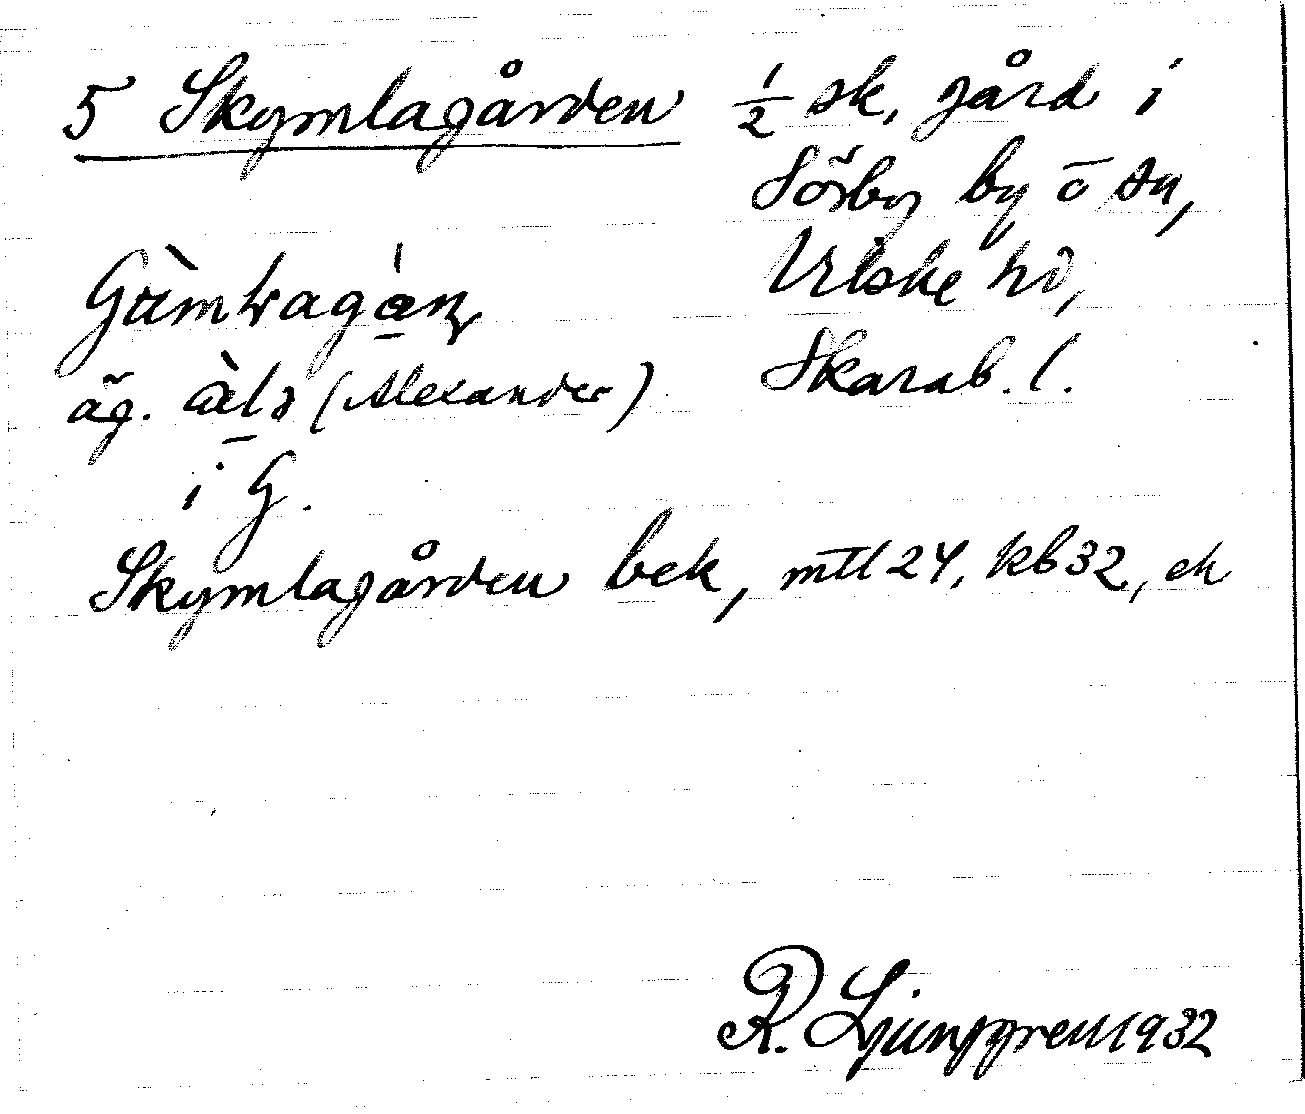 5 Skymlagården
½ sk. gård i
Sörby by ō sn,
Vilske hd,
Skarab. l.
äg. (Alexander)
i G.
Skymlagården bek, mtl 24, kb 32, ek
R. Ljunggren 1932